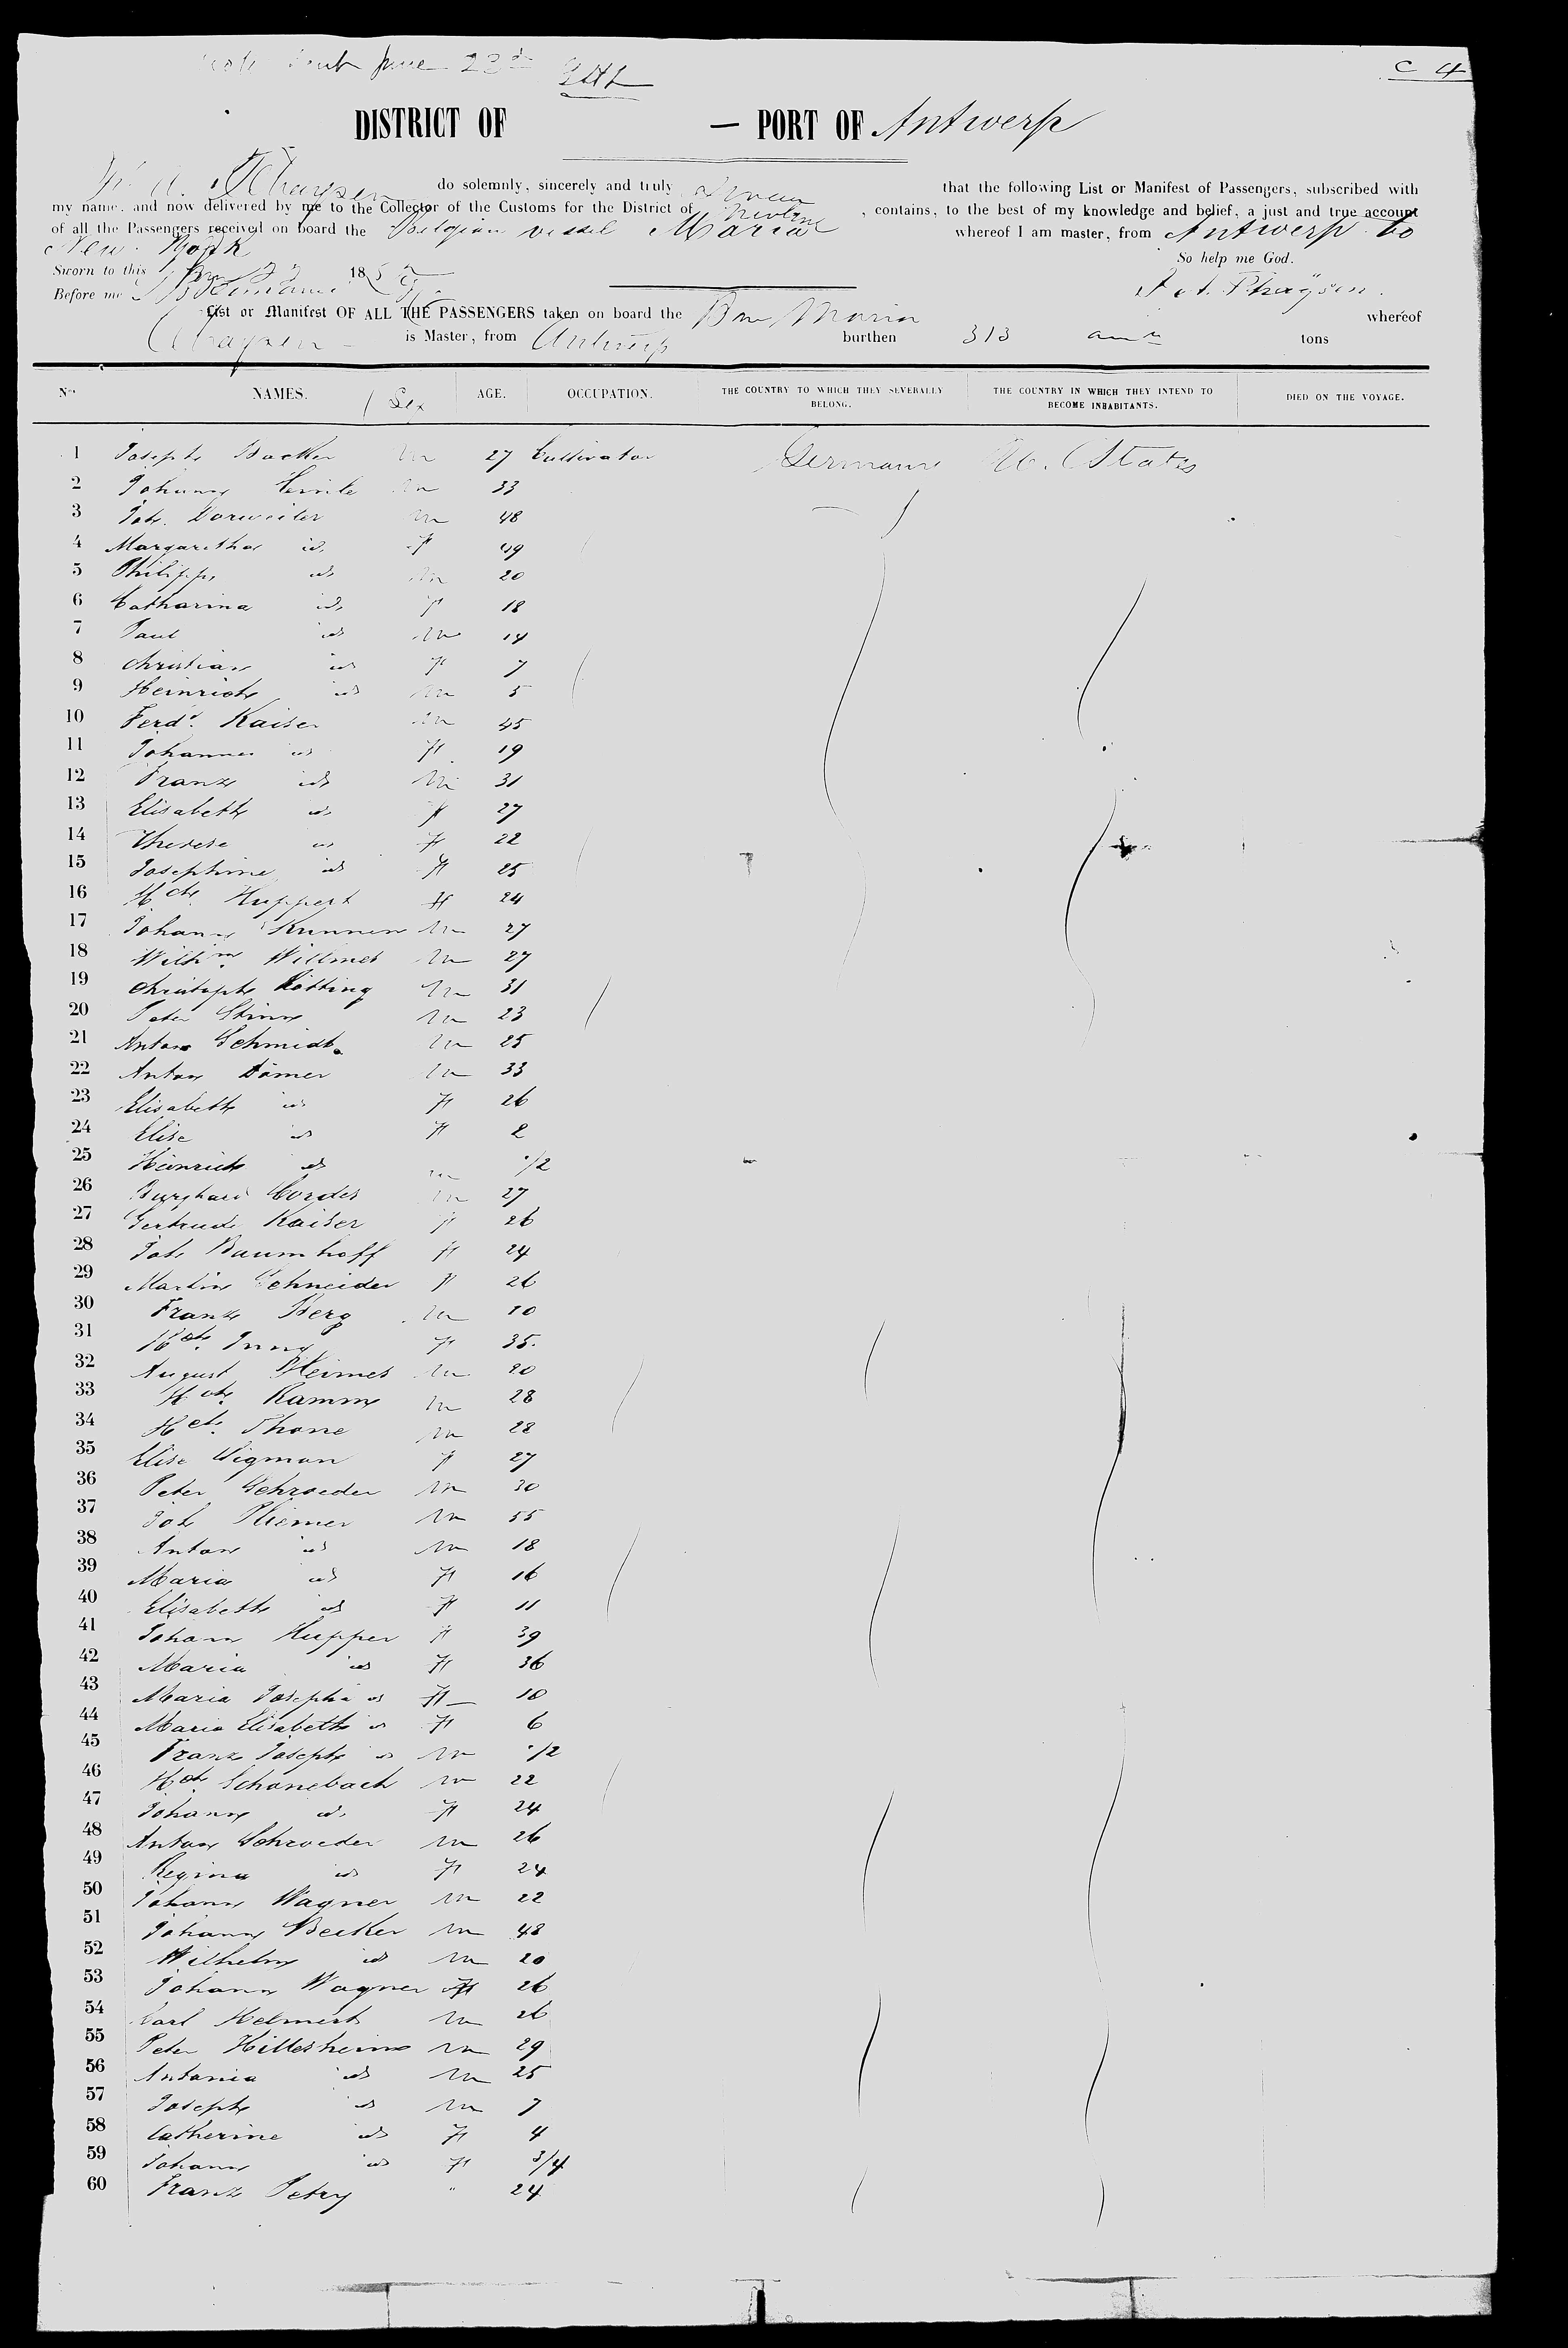 June 23d
C 4
DISTRICT OF — PORT OF Antwerp
do solemnly, sincerely and truly that the following List or Manifest of Passengers, subscribed with
my name, and now delivered by me to the Collector of the Customs for the District of , contains, to the best of my knowledge and belief, a just and true account
of all the Passengers received on board the Belgian vessel Maria whereof I am master, from Antwerp to
New York
So help me God.
Sworn to this 185
Before me
List or Manifest OF ALL THE PASSENGERS taken on board the Maria whereof
is Master, from Antwerp burthen 313 tons
Nos NAMES. Sex AGE. OCCUPATION. THE COUNTRY TO WHICH THEY SEVERALLY BELONG. THE COUNTRY IN WHICH THEY INTEND TO BECOME INHABITANTS. DIED ON THE VOYAGE.
1 Joseph m 27 Cultivator Germany U. States
2 Johann m 33
3 Joh. Dorweiler m 48
4 Margaretha id f 49
5 Philipp id m 20
6 Catharina id f 18
7 Paul id m 14
8 Christian id f 7
9 Heinrich id m 5
10 Ferdd. Kaiser m 45
11 Johannes id f 19
12 Franz id m 31
13 Elisabeth id f 27
14 Therese id f 22
15 Josephine id f 25
16 Hch. Huppert f 24
17 Johann Kunnen m 27
18 Wilhm. Willmes m 27
19 Christoph Kötting m 31
20 Peter m 23
21 Anton Schmidt m 25
22 Anton Dömer m 33
23 Elisabeth id f 26
24 Elise id f 2
25 Heinrich id m 1/2
26 Burghard Cordes m 27
27 Gertrude Kaiser f 26
28 Joh Baumhoff f 24
29 Martin Schneider f 26
30 Franz Berg m 10
31 f 35
32 August Heimes m 20
33 Hch. Ramm m 28
34 Hch. Thone m 28
35 Elise Wigman f 27
36 Peter Schroeder m 30
37 Joh m 55
38 Anton id m 18
39 Maria id f 16
40 Elisabeth id f 11
41 Johann Hupper f 39
42 Maria id f 36
43 Maria Josepha id f 10
44 Maria Elisabeth id f 6
45 Franz Joseph id m 1/2
46 Hch. Schonebach m 22
47 Johann id f 24
48 Anton Schroeder m 26
49 Regina id f 24
50 Johann Wagner m 22
51 Johann Becker m 48
52 Wilhelm id m 20
53 Johann Wagner f 26
54 Carl Helmert m 26
55 Peter Hillesheim m 29
56 Antonia id m 25
57 Joseph id m 7
58 Catherine id f 4
59 Johann id f 3/4
60 Franz Petry " 24